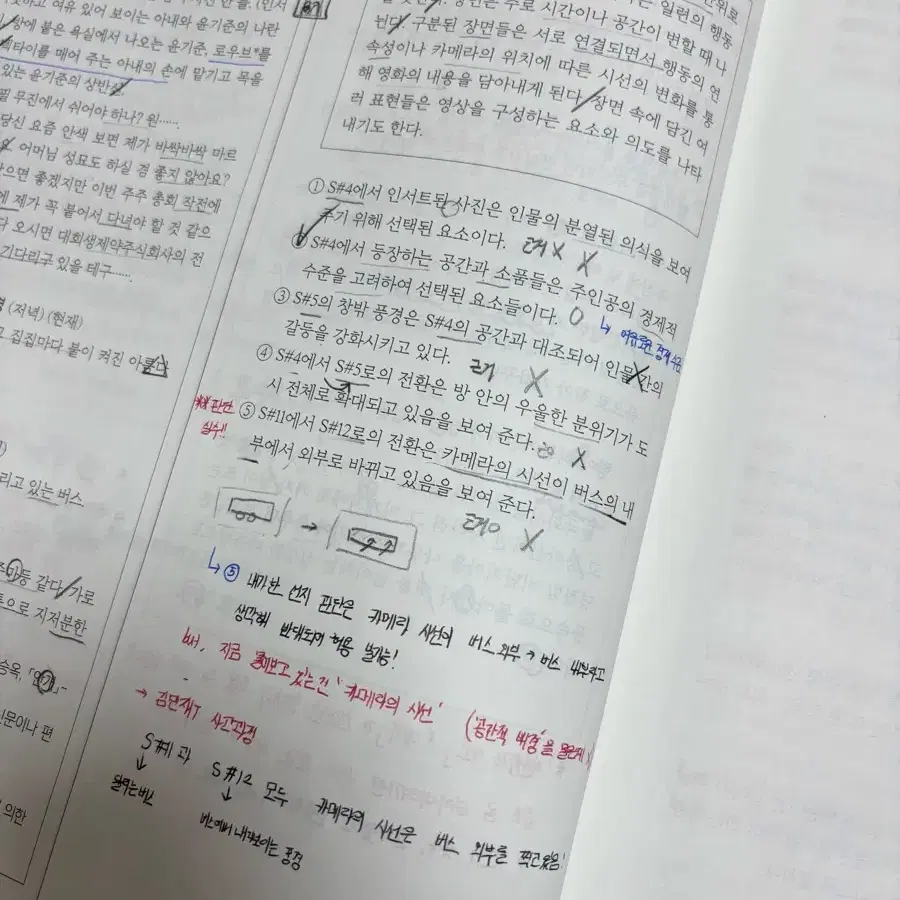 못하고 여유 있어 보이는 아내와 윤기준의 나란
상에 붙은 욕실에서 나오는 윤기준, 로우브*를
넥타이를 매어 주는 아내의 손에 맡기고 목을
있는 윤기준의 상반신
필 무진에서 쉬어야 하나? 원……
당신 요즘 안색 보면 제가 바싹바싹 마르
어머님 성묘도 하실 겸 좋지 않아요?
았으면 좋겠지만 이번 주주 총회 작전에
에 제가 꼭 붙어서 다녀야 할 것 같으
다 오시면 대회생제약주식회사의 전
기다리구 있을 테구……
(저녁) (현재)
집집마다 불이 켜진 아
리고 있는 버스
등 같다. 가로
으로 지저분한
승옥, 「안개」-
신문이나 편
의한
일련의 행동
장면은 주로 시간이나 공간이 변할 때 나
뉜다. 구분된 장면들은 서로 연결되면서 행동의 연
속성이나 카메라의 위치에 따른 시선의 변화를 통
해 영화의 내용을 담아내게 된다. 장면 속에 담긴 여
러 표현들은 영상을 구성하는 요소와 의도를 나타
내기도 한다.
① S#4에서 인서트된 사진은 인물의 분열된 의식을 보여
주기 위해 선택된 요소이다. X
S#4에서 등장하는 공간과 소품들은 주인공의 경제적
수준을 고려하여 선택된 요소들이다. O
③ S#5의 창밖 풍경은 S#4의 공간과 대조되어 인물 간의
갈등을 강화시키고 있다. X
④ S#4에서 S#5로의 전환은 방 안의 우울한 분위기가 도
시 전체로 확대되고 있음을 보여 준다. X
판단
실수!!
⑤ S#11에서 S#12로의 전환은 카메라의 시선이 버스의 내
부에서 외부로 바뀌고 있음을 보여 준다.
X
→
↳ ⑤ 내가 한 선지 판단은 카메라 시선이 버스 외부 → 버스 내부라고
생각해 반대되어 허용 불가능!
but, 지금 물어보고 있는건 '카메라의 시선' (공간적 배경을
→ 김민재T 사고과정
S#11과 S#12 모두 카메라의 시선은 버스 외부를 찍고있음!
↓ ↓
달리는버스
버스에서 내다보이는 풍경